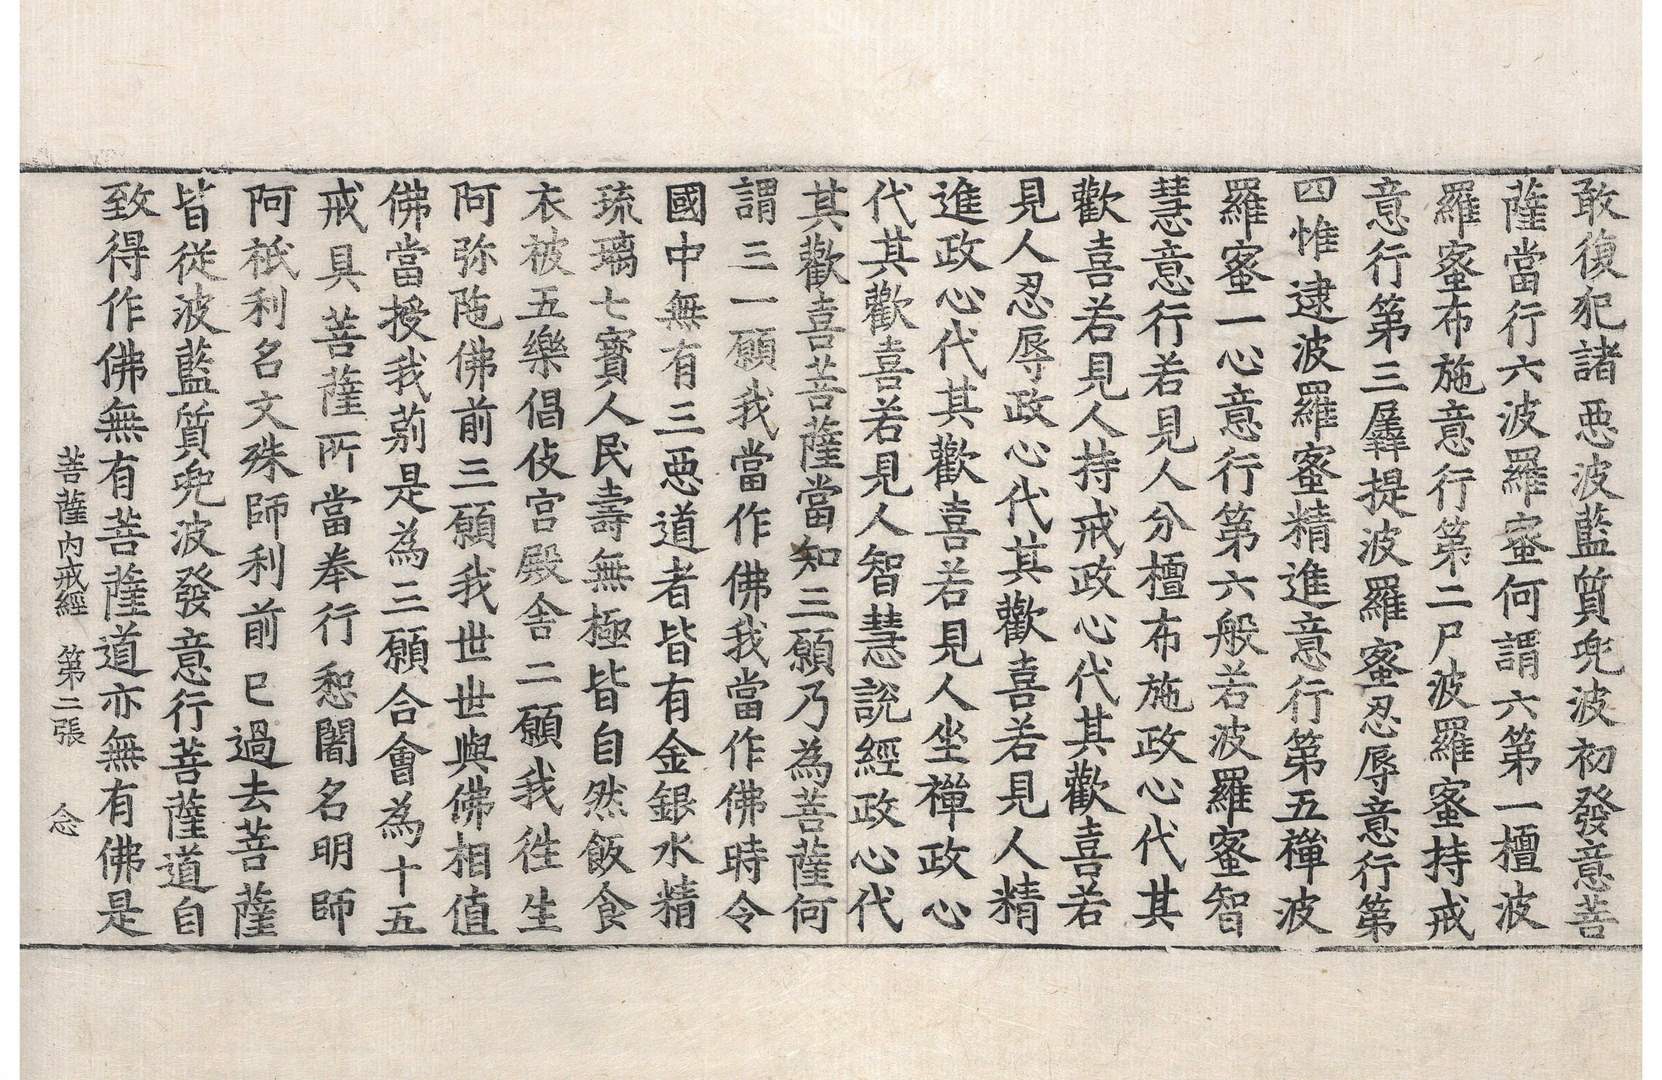 敢復犯諸惡波藍質兜波初發意菩
薩當行六波羅蜜何謂六第一檀波
羅蜜布施意行第二尸波羅蜜持戒
意行第三羼提波羅蜜忍辱意行第
四惟逮波羅蜜精進意行第五禪波
羅蜜一心意行第六般若波羅蜜智
慧意行若見人分檀布施政心代其
歡喜若見人持戒政心代其歡喜若
見人忍辱政心代其歡喜若見人精
進政心代其歡喜若見人坐禪政心
代其歡喜若見人智慧說經政心代
其歡喜菩薩當知三願乃為菩薩何
謂三一願我當作佛我當作佛時令
國中無有三惡道者皆有金銀水精
琉璃七寶人民壽無極皆自然飯食
衣被五樂倡伎宮殿舍二願我徃生
阿弥陁佛前三願我世世與佛相值
佛當授我莂是為三願合會為十五
戒具菩薩所當奉行惒闍名明師
阿祇利名文殊師利前已過去菩薩
皆從波藍質兜波發意行菩薩道自
致得作佛無有菩薩道亦無有佛是
菩薩內戒經　第二張　念